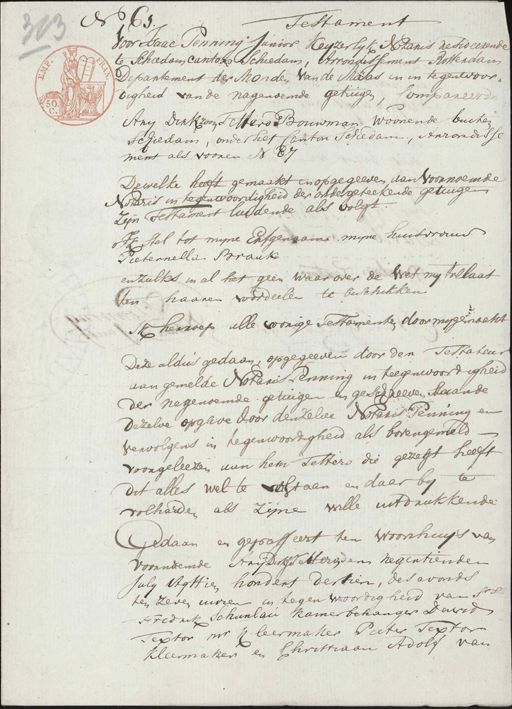 303
No. 63. Testament
EMP. FRAN.
50 C.
Voor Isaac Penning Junior Keyzerlyk Notaris resideerende
te Schiedam canton Schiedam, Arrondissement Rotterdam
Departement der Monden van de Maas in integenwoor-
digheid van de nagenoemde getuigen, Compareerde
Ary Dirkzen Tetteroo Bouwman, Woonende buiten
Schiedam, onder het Canton Schiedam, Arrondisse
ment als vooren N 87
Dewelke heeft gemaakt en opgegeeven aan Voornoemde
Notaris in tegenwoordigheid der ondergeteekende getuigen
Zijn Testament luidende als volgt
Ik stel tot myne Erfgenaam myne huisvrouw
Pieternella
en zulks in al het geen waar over de Wet my toelaat
ten haaren voordeelen te beschikken
Ik herroep alle voorige Testamenten door my gemaakt
Deze aldus gedaan, opgegeeven door den Testateur
aan gemelde Notaris Penning in teegenwoordigheid
der nagenoemde getuigen en geschreeven staande
dezelve opgave door denzelve Notaris Penning en
vervolgens in tegenwoordigheid als bovengemeld
voorgeleezen aan hem Tetteroo die gezegt heeft
dit alles wel te verstaan en daar by te
volharden als Zijne wille uitdrukkende
Gedaan en gepasseert ten Woonhuys van
voornoemde Ary Dirkz Tetteroo den negentienden
July Agttien hondert dertien, des avonds
ten zeven uuren in tegenwoordigheid van
Fredrik kamerbehanger David
Textor kleermaker Pieter Textor
kleermaker en Christiaan Adolf van